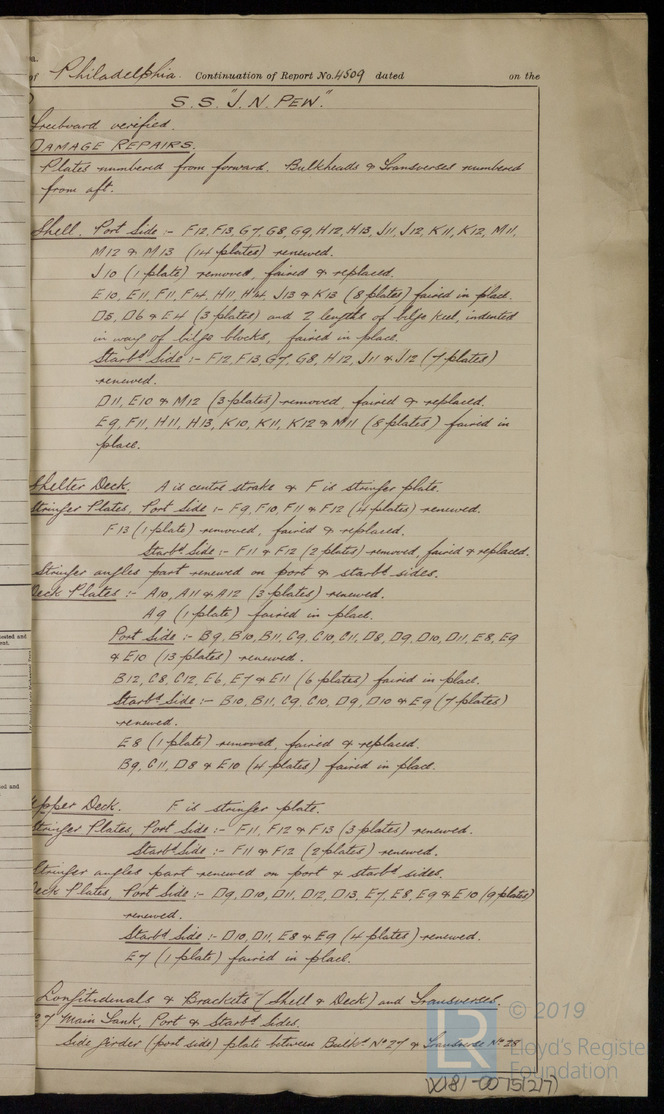 of Philadelphia. Continuation of Report No. 4509 dated on the
S.S. "J. N. PEW."
Freeboard verified.
DAMAGE REPAIRS.
Plates numbered from forward. Bulkheads & Transverses numbered
from aft.
Shell. Port Side :- F12, F13, G7, G8, G9, H12, H13, J11, J12, K11, K12, M11,
M12 & M13 (14 plates) renewed.
J10 (1 plate) removed, faired & replaced.
E10, E11, F11, F14, H11, H14, J13 & K13 (8 plates) faired in place.
D5, D6 & E4 (3 plates) and 2 lengths of bilge keel, indented
in way of bilge blocks, faired in place.
Starbd Side :- F12, F13, G7, G8, H12, J11 & J12 (7 plates)
renewed.
D11, E10 & M12 (3 plates) removed, faired & replaced.
E9, F11, H11, H13, K10, K11, K12 & M11 (8 plates) faired in
place.
Shelter Deck. A is centre strake & F is stringer plate.
Stringer Plates, Port Side :- F9, F10, F11 & F12 (4 plates) renewed.
F13 (1 plate) removed, faired & replaced.
Starbd Side :- F11 & F12 (2 plates) removed, faired & replaced.
Stringer angles part renewed on port & starbd sides.
Deck Plates :- A10, A11 & A12 (3 plates) renewed.
A9 (1 plate) faired in place.
Port Side :- B9, B10, B11, C9, C10, C11, D8, D9, D10, D11, E8, E9
& E10 (13 plates) renewed.
B12, C8, C12, E6, E7 & E11 (6 plates) faired in place.
Starbd Side :- B10, B11, C9, C10, D9, D10 & E9 (7 plates)
renewed.
E8 (1 plate) removed, faired & replaced.
B9, C11, D8 & E10 (4 plates) faired in place.
Upper Deck. F is stringer plate.
Stringer Plates, Port Side :- F11, F12 & F13 (3 plates) renewed.
Starbd Side :- F11 & F12 (2 plates) renewed.
Stringer angles part renewed on port & starbd sides.
Deck Plates, Port Side :- D9, D10, D11, D12, D13, E7, E8, E9 & E10 (9 plates)
renewed.
Starbd Side :- D10, D11, E8 & E9 (4 plates) renewed.
E7 (1 plate) faired in place.
Longitudinals & Brackets (Shell & Deck) and Transverses.
7 Main Tank, Port & Starbd Sides.
Side girder (port side) plate between Bulkd No 27 & Transverse No 28
© 2019
LR
Lloyd's Register
Foundation